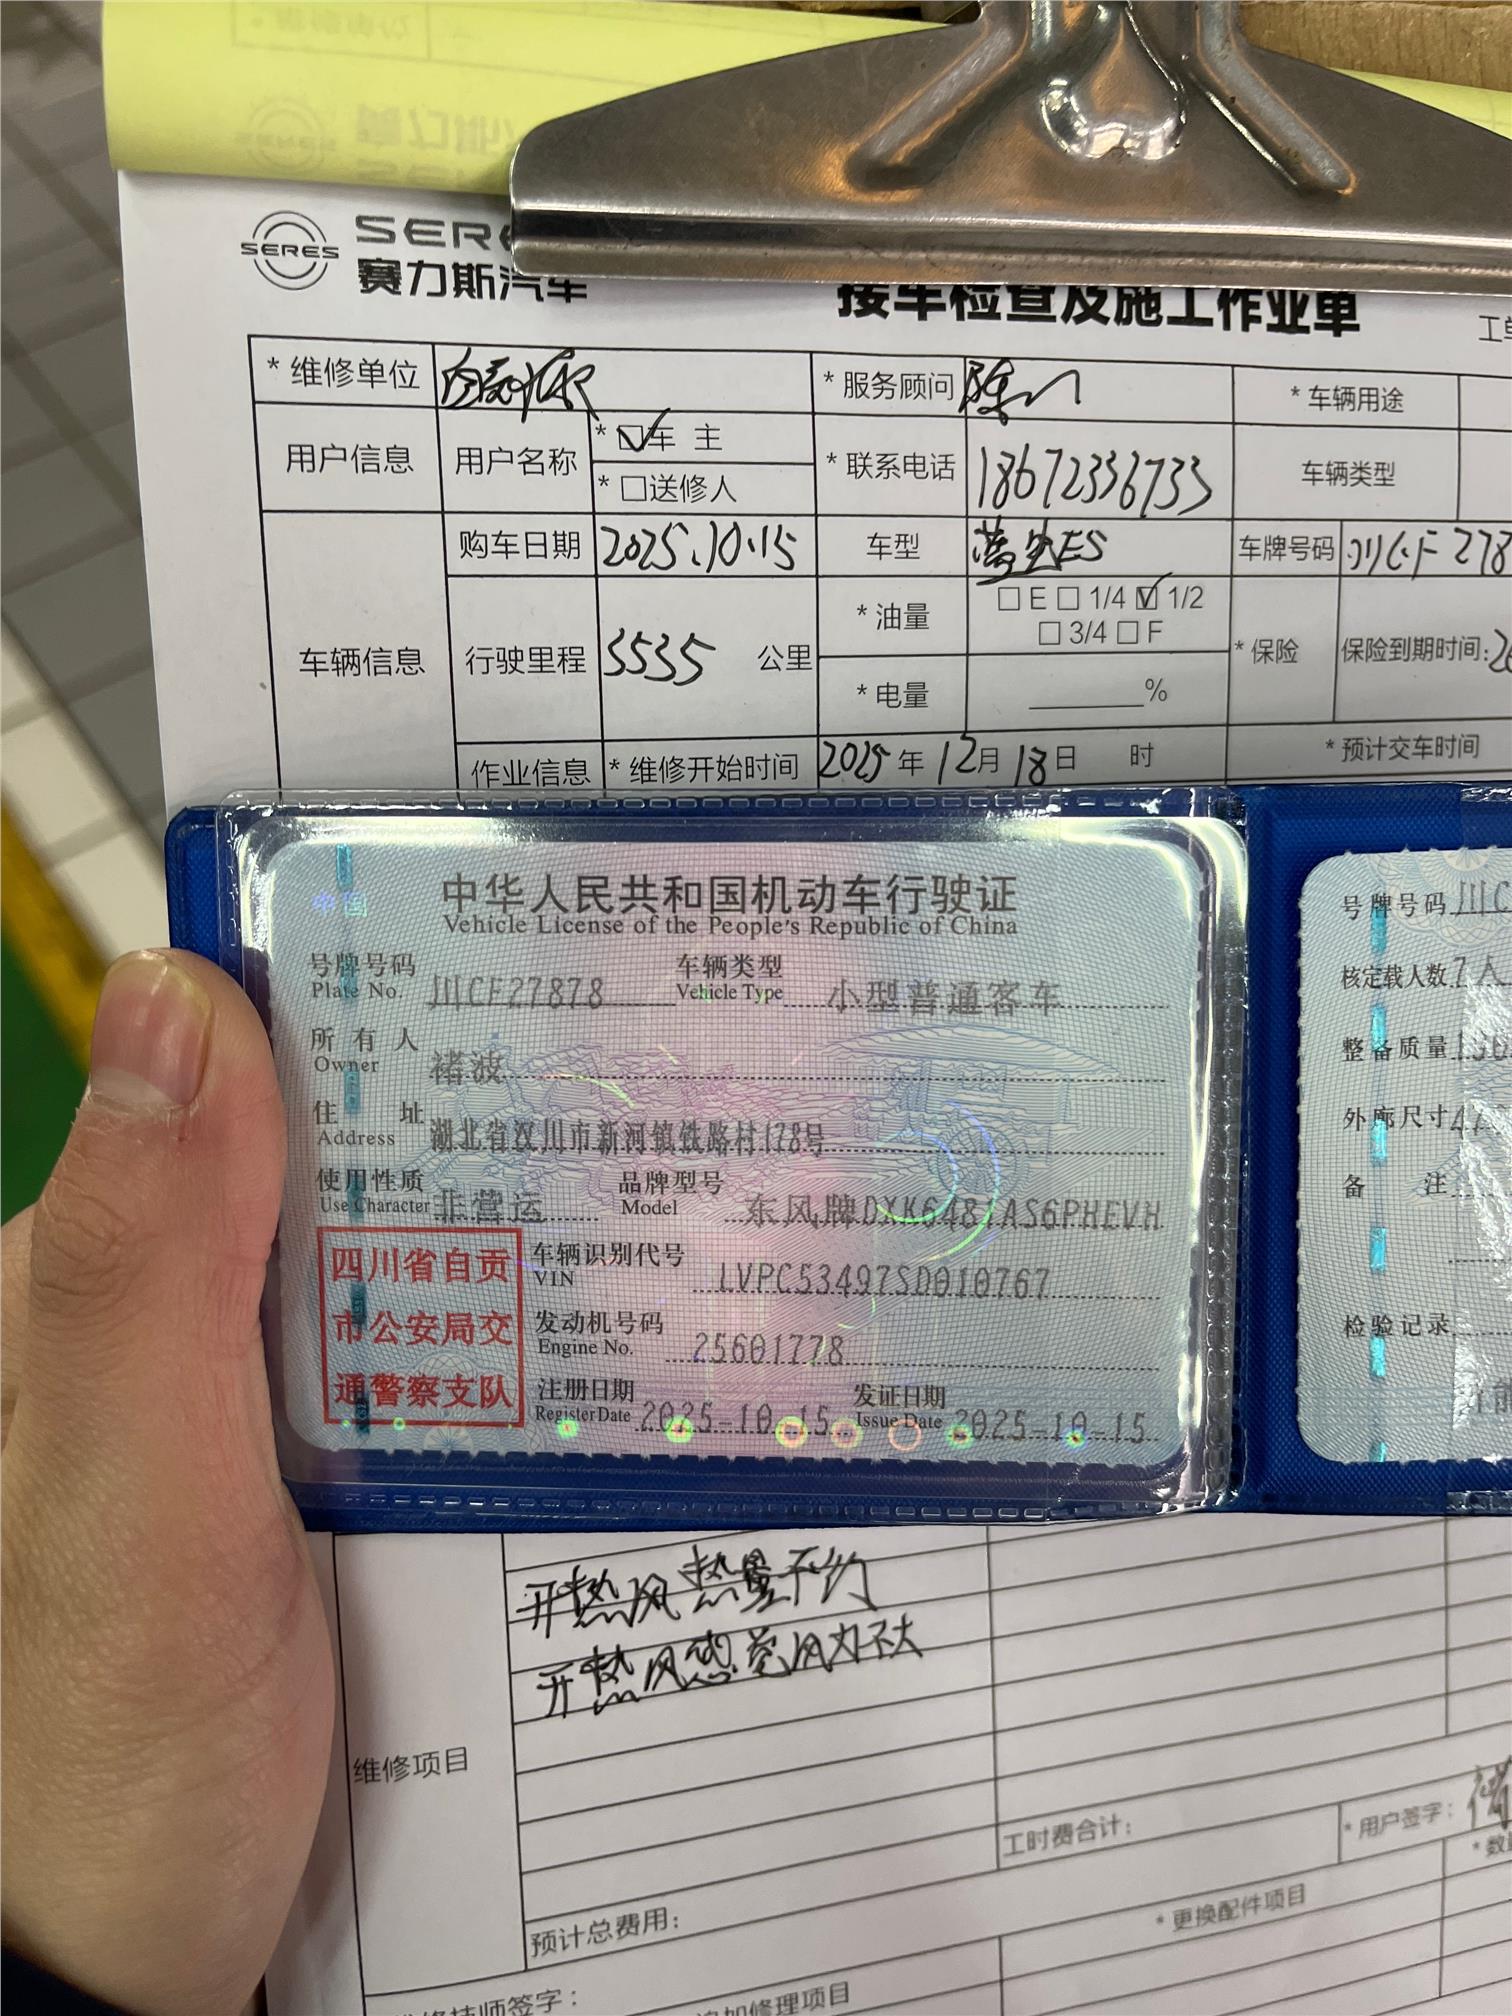 SERES
赛力斯汽车
接车检查及施工作业单
* 维修单位
* 服务顾问
* 车辆用途
用户信息 用户名称 * 车 主
* 送修人
* 联系电话 18672336733
车辆类型
车辆信息 购车日期 2025.10.15
车型 蓝电E5
车牌号码 川C·F 278
行驶里程 3535 公里
* 油量 E 1/4 1/2
3/4 F
* 电量 %
* 保险 保险到期时间:
作业信息 * 维修开始时间 2025年12月18日 时
* 预计交车时间
中华人民共和国机动车行驶证
Vehicle License of the People's Republic of China
号牌号码 川CF27878 车辆类型 小型普通客车
Plate No. Vehicle Type
所有人 褚波
Owner
住址 湖北省汉川市新河镇铁路村178号
Address
使用性质 非营运 品牌型号 东风牌DXK6481AS6PHEVH
Use Character Model
四川省自贡
市公安局交
通警察支队
车辆识别代号 LVPC53497SD010767
VIN
发动机号码 25601778
Engine No.
注册日期 2025-10-15 发证日期 2025-10-15
Register Date Issue Date
号牌号码 川C
核定载人数 7人
整备质量
外廓尺寸
备注
检验记录
维修项目
开热风热量不均
开热风感觉风力不大
工时费合计:
* 用户签字:
预计总费用:
* 更换配件项目
维修技师签字:
追加修理项目